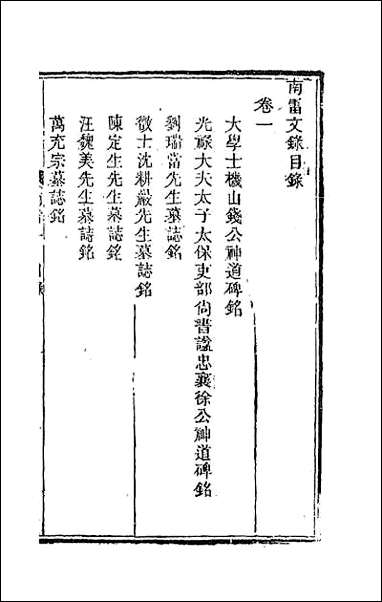 南雷文錄目錄
卷一
大學士機山錢公神道碑銘
光祿大夫太子太保吏部尚書諡忠襄徐公神道碑銘
劉瑞當先生墓誌銘
徵士沈耕巖先生墓誌銘
陳定生先生墓誌銘
汪魏美先生墓誌銘
萬充宗墓誌銘